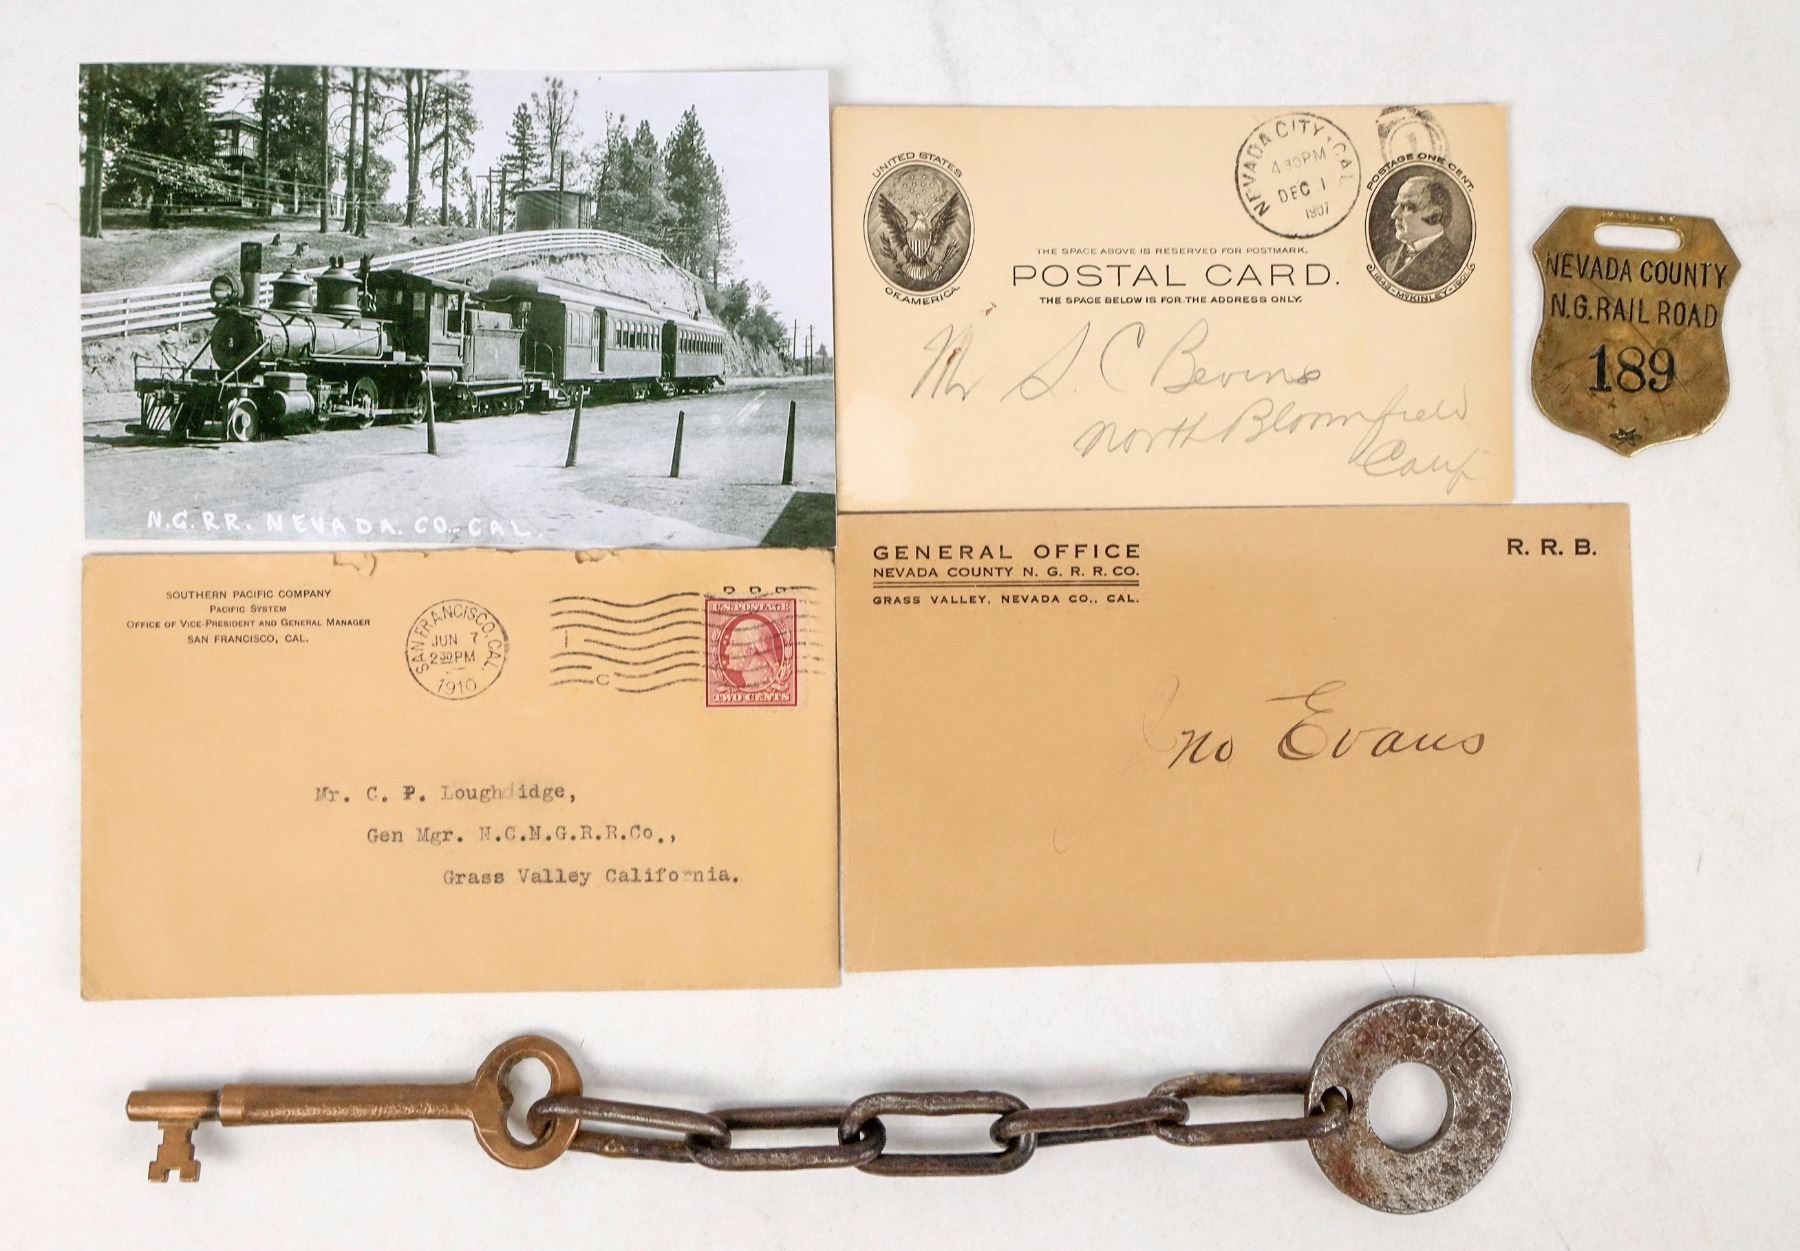 N.G.R.R. NEVADA. CO.-CAL.
UNITED STATES
OF AMERICA.
NEVADA CITY, CAL.
430PM
DEC 1
1907
POSTAGE ONE CENT.
1843-McKINLEY-1901
THE SPACE ABOVE IS RESERVED FOR POSTMARK.
POSTAL CARD.
THE SPACE BELOW IS FOR THE ADDRESS ONLY.
Mr S. C Bevins
North Bloomfield
NEVADA COUNTY
N.G. RAIL ROAD
189
SOUTHERN PACIFIC COMPANY
PACIFIC SYSTEM
OFFICE OF VICE-PRESIDENT AND GENERAL MANAGER
SAN FRANCISCO, CAL.
SAN FRANCISCO, CAL.
JUN 7
230PM
1910
C
U.S. POSTAGE
TWO CENTS
Mr. C. P. Loughridge,
Gen Mgr. N.C.N.G.R.R.Co.,
Grass Valley California.
GENERAL OFFICE
NEVADA COUNTY N. G. R. R. CO.
GRASS VALLEY, NEVADA CO., CAL.
R. R. B.
Jno Evans